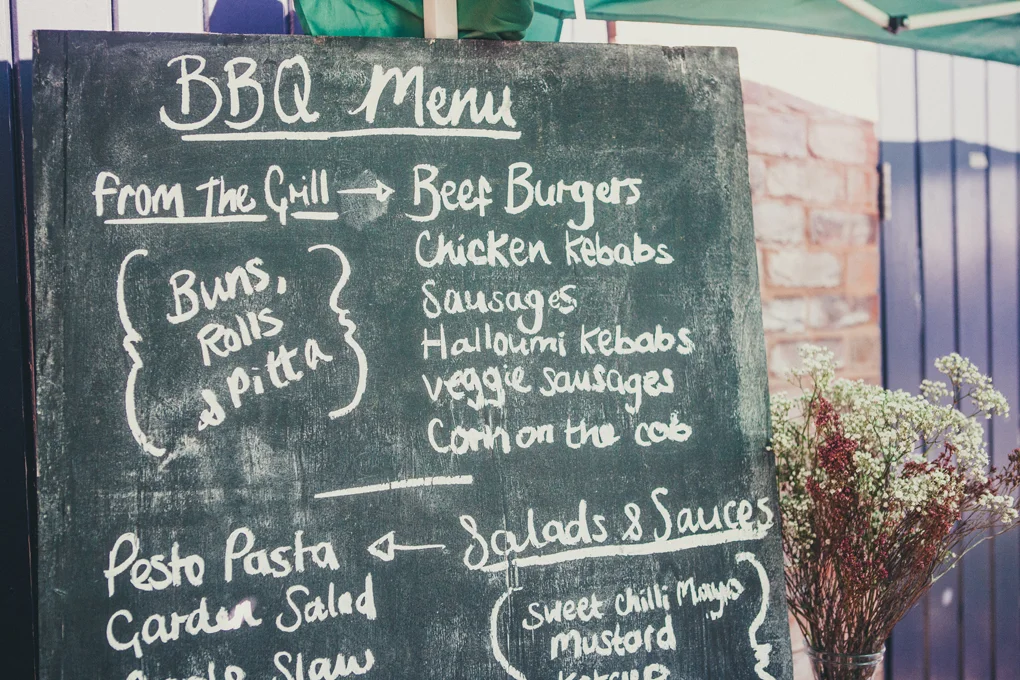 BBQ Menu
From The Grill
Buns,
Rolls
& Pitta
Beef Burgers
Chicken Kebabs
Sausages
Halloumi Kebabs
veggie sausages
Corn on the cob
Salads & Sauces
Pesto Pasta
Garden Salad
Slaw
Sweet chilli Mayo
Mustard
Ketchup